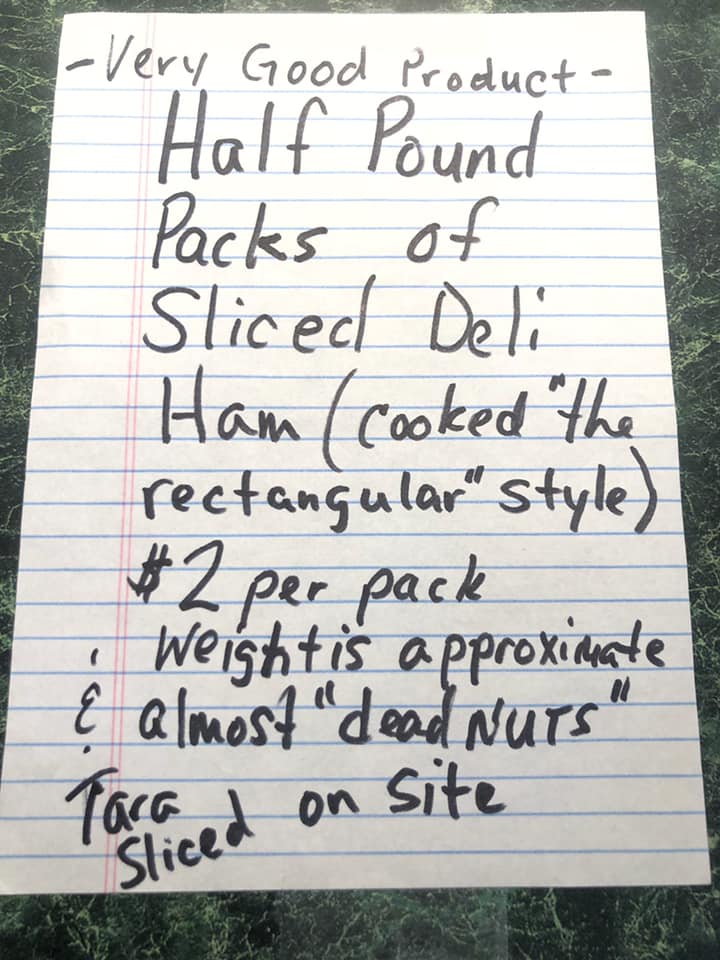 -Very Good Product-
Half Pound
Packs of
Sliced Deli
Ham (cooked "the
rectangular" style)
$2 per pack
Weight is approximate
& almost "dead NUTS"
Tara Sliced on Site